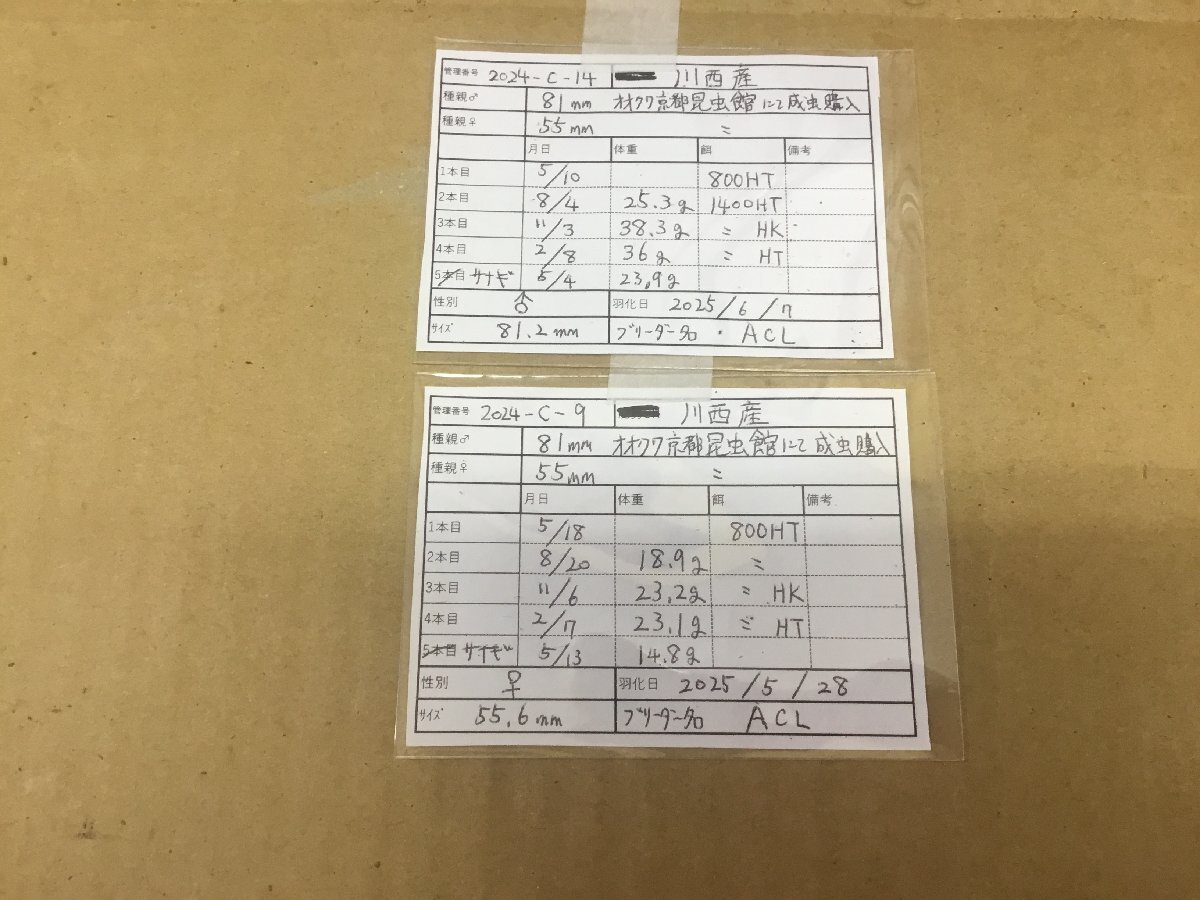 管理番号 2024-C-14 川西産
種親♂ 81mm オオクワ京都昆虫館にて成虫購入
種親♀ 55mm 〃
月日 体重 餌 備考
1本目 5/10 800HT
2本目 8/4 25.3g 1400HT
3本目 11/3 38.3g 〃 HK
4本目 2/8 36g 〃 HT
5本目 サナギ 5/4 23.9g
性別 ♂ 羽化日 2025/6/7
サイズ 81.2mm ブリーダー名 ACL
管理番号 2024-C-9 川西産
種親♂ 81mm オオクワ京都昆虫館にて成虫購入
種親♀ 55mm 〃
月日 体重 餌 備考
1本目 5/18 800HT
2本目 8/20 18.9g 〃
3本目 11/6 23.2g 〃 HK
4本目 2/7 23.1g 〃 HT
5本目 サナギ 5/13 14.8g
性別 ♀ 羽化日 2025/5/28
サイズ 55.6mm ブリーダー名 ACL